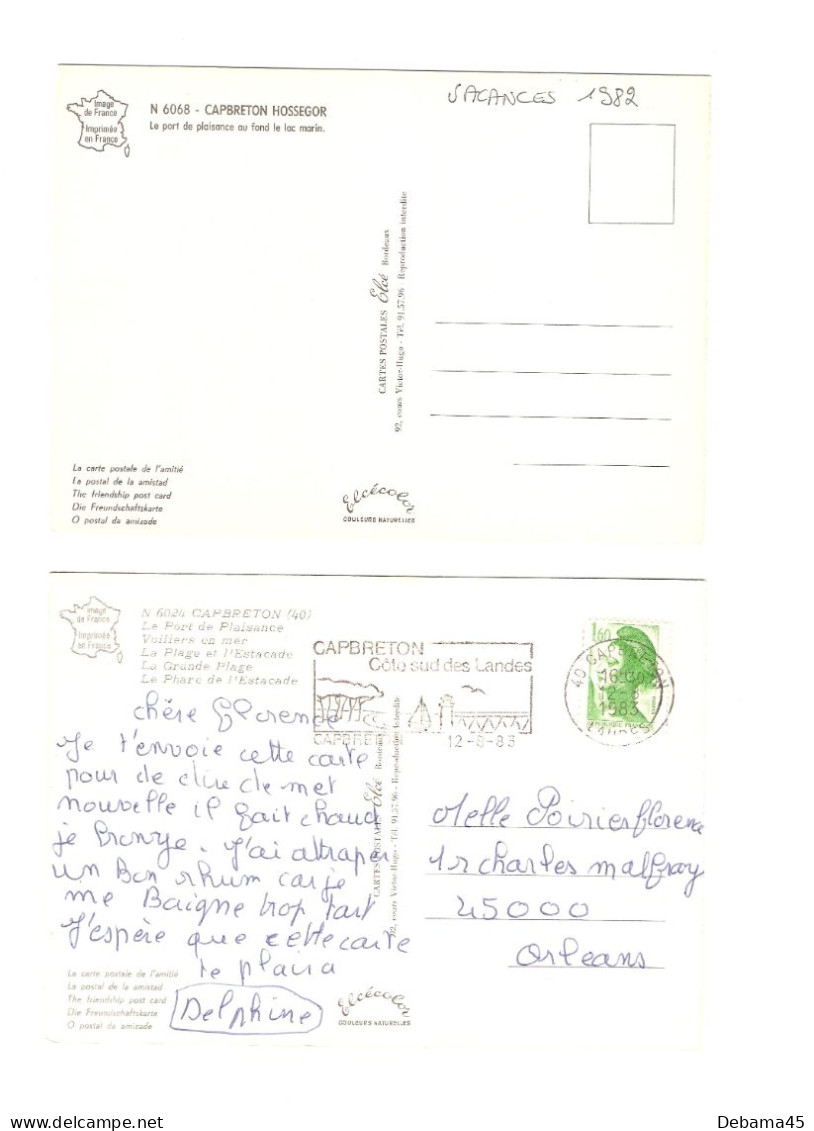 Image
de France
Imprimée
en France
N 6068 - CAPBRETON HOSSEGOR
Le port de plaisance au fond le lac marin.
VACANCES 1982
CARTES POSTALES Elcé Bordeaux
92, cours Victor-Hugo - Tél. 91.57.96 - Reproduction interdite
La carte postale de l'amitié
La postal de la amistad
The friendship post card
Die Freundschaftskarte
O postal da amizade
Elcécolor
COULEURS NATURELLES
Image
de France
Imprimée
en France
N 6024 CAPBRETON (40)
Le Port de Plaisance
Voiliers en mer
La Plage et l'Estacade
La Grande Plage
Le Phare de l'Estacade
CAPBRETON
Côte sud des Landes
CAPBRE
12-8-83
1,60
40 CAPBRETON
16H30
12-8
1983
LANDES
chère Florence
Je t'envoie cette carte
pour de
nouvelle il fait chaud
je Bronze. J'ai attraper
un Bon rhum car je
me Baigne trop tart
J'espère que cette carte
te plaira
Delphine
CARTES POSTALES Elcé Bordeaux
92, cours Victor-Hugo - Tél. 91.57.96 - Reproduction interdite
Melle Poirier florence
1r charles malfray
45000
Orleans
La carte postale de l'amitié
La postal de la amistad
The friendship post card
Die Freundschaftskarte
O postal da amizade
Elcécolor
COULEURS NATURELLES
Debama45